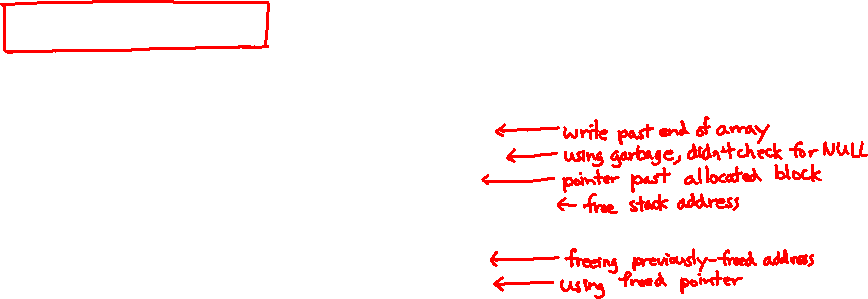 write past end of array
using garbage, didn't check for NULL
pointer past allocated block
free stack address
freeing previously-freed address
using freed pointer